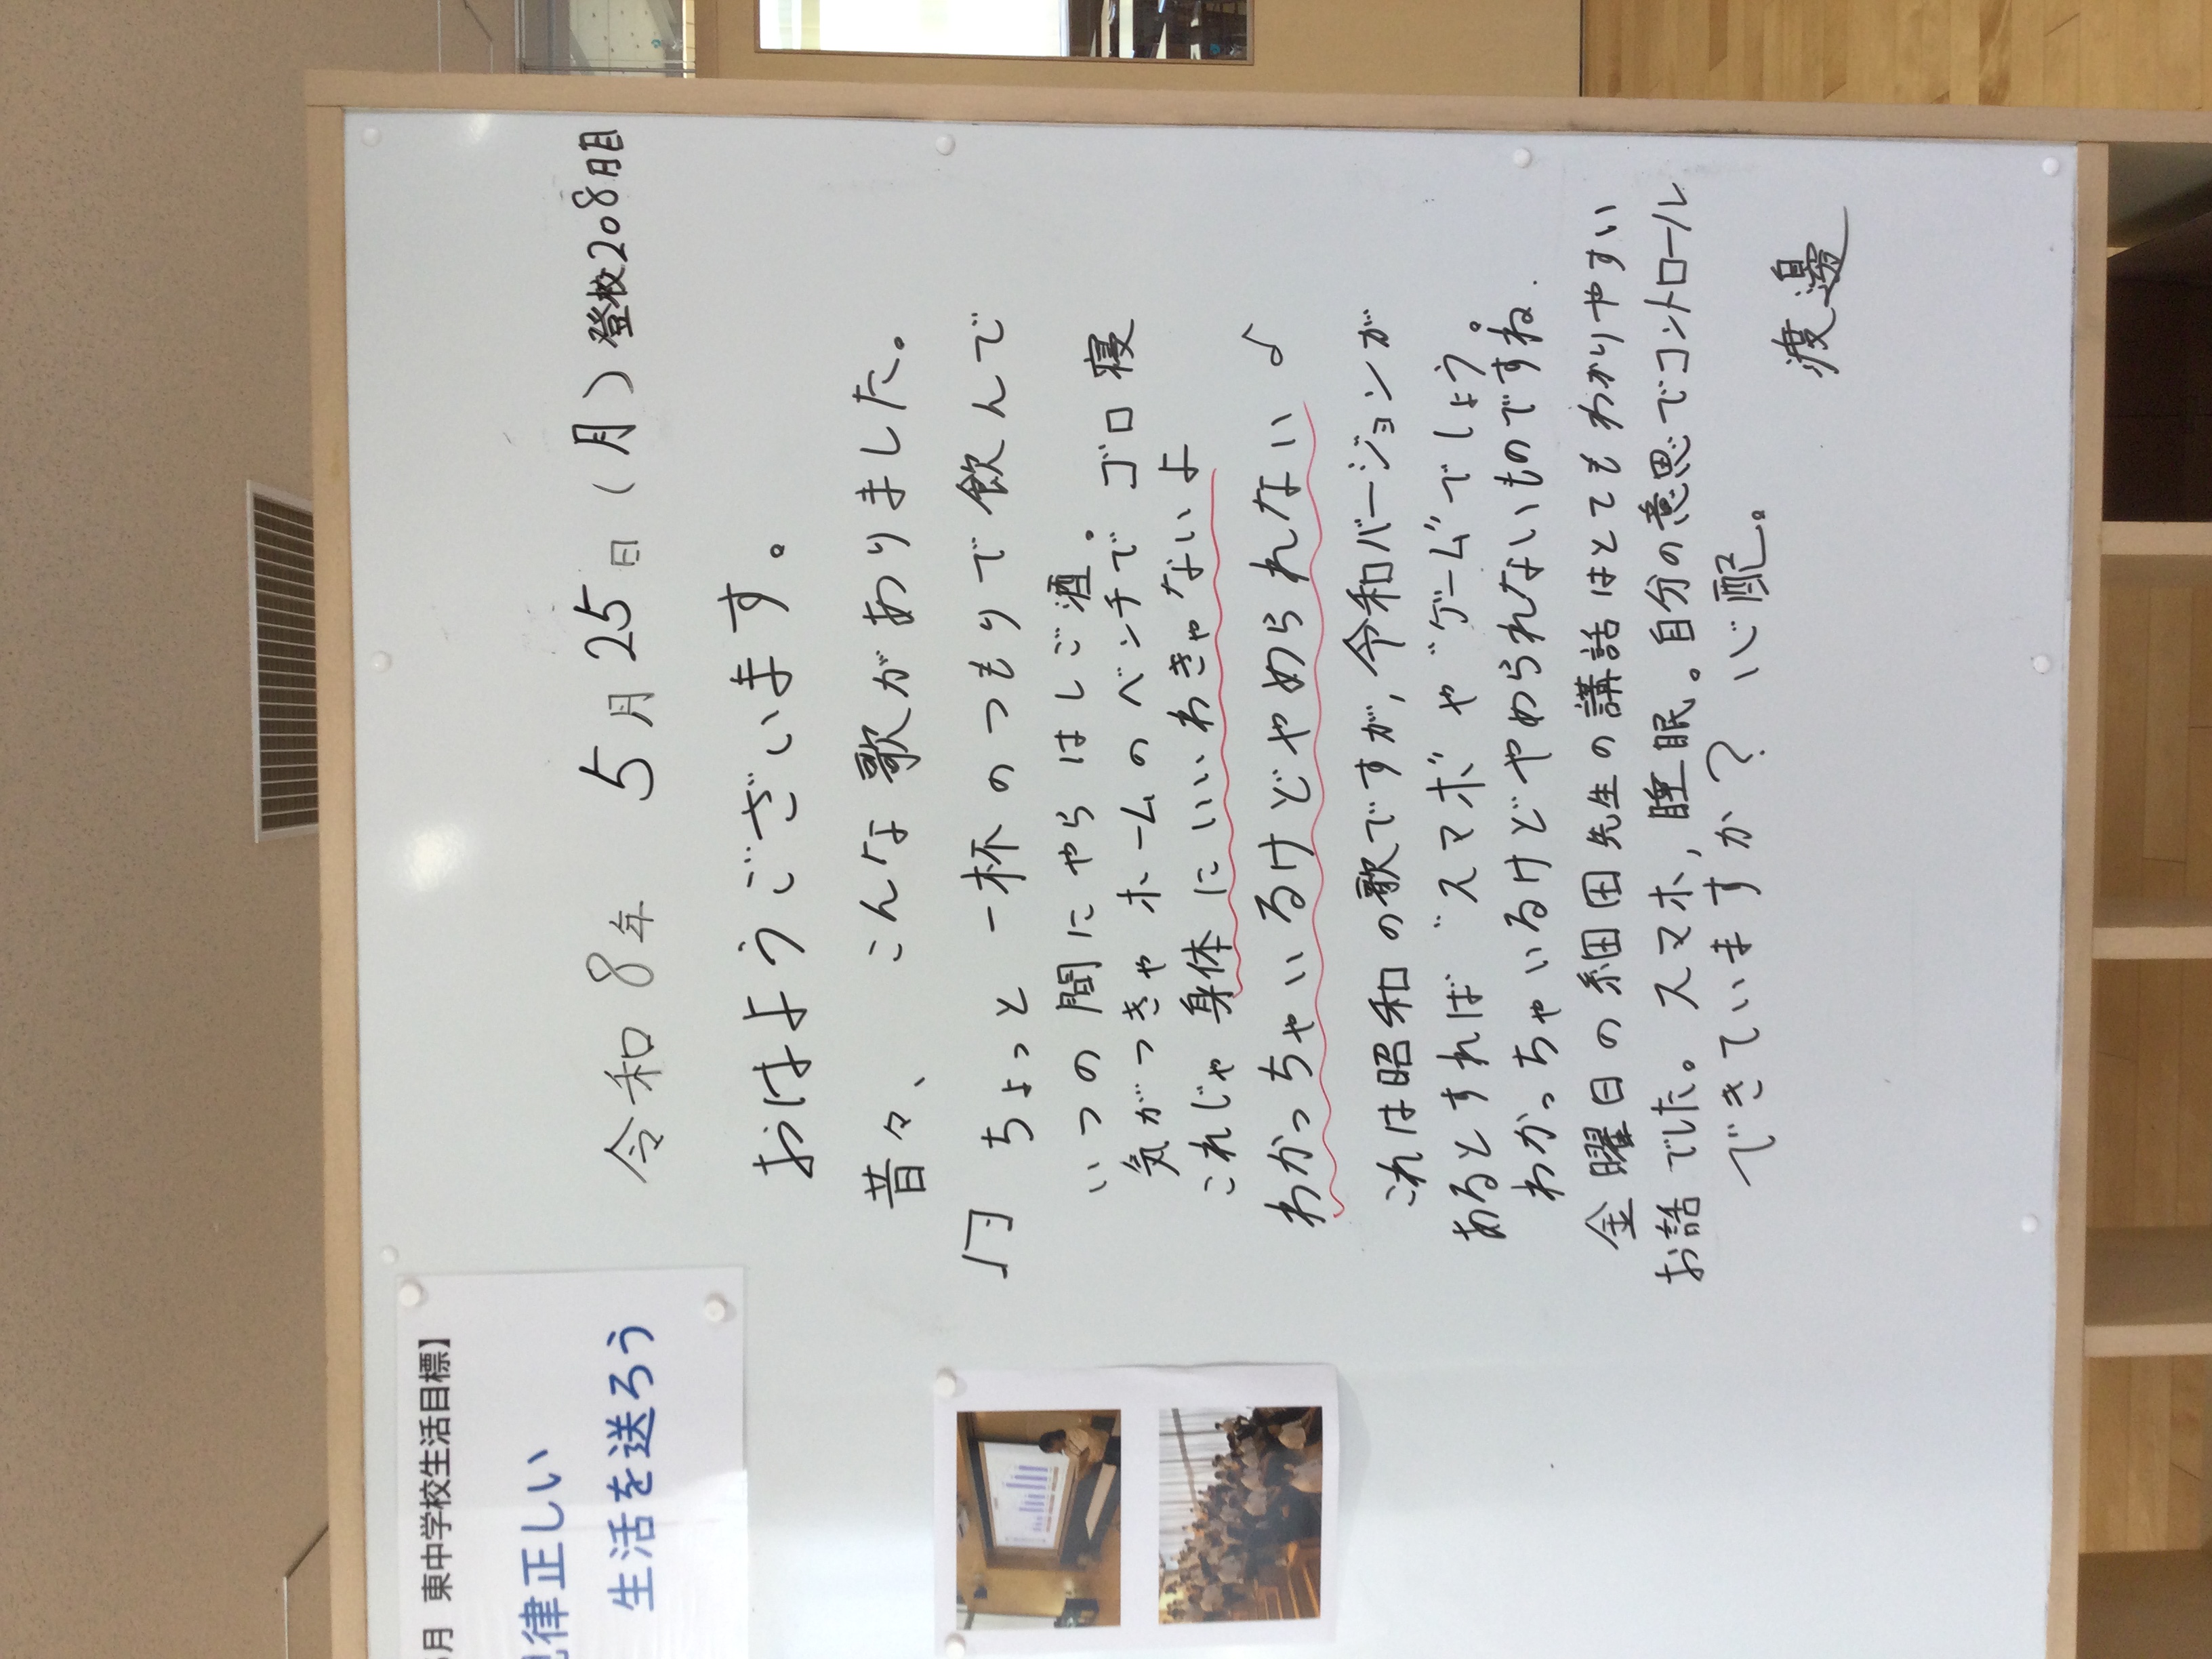 令和8年 5月25日(月)登校208日目
おはようございます。
昔々、こんな歌がありました。
♫ ちょっと一杯のつもりで飲んで
いつの間にやらはしご酒
気がつきゃホームのベンチで ゴロ寝
これじゃ身体にいいわきゃないよ
わかっちゃいるけどやめられない♪
これは昭和の歌ですが，令和バージョンが
あるとすれば“スマホ”や“ゲーム”でしょう。
わかっちゃいるけどやめられないものですね.
金曜日の細田先生の講話はとてもわかりやすい
お話でした。スマホ，睡眠。自分の意思でコントロール
できていますか？心配。
渡邊
月 東中学校生活目標】
律正しい
生活を送ろう